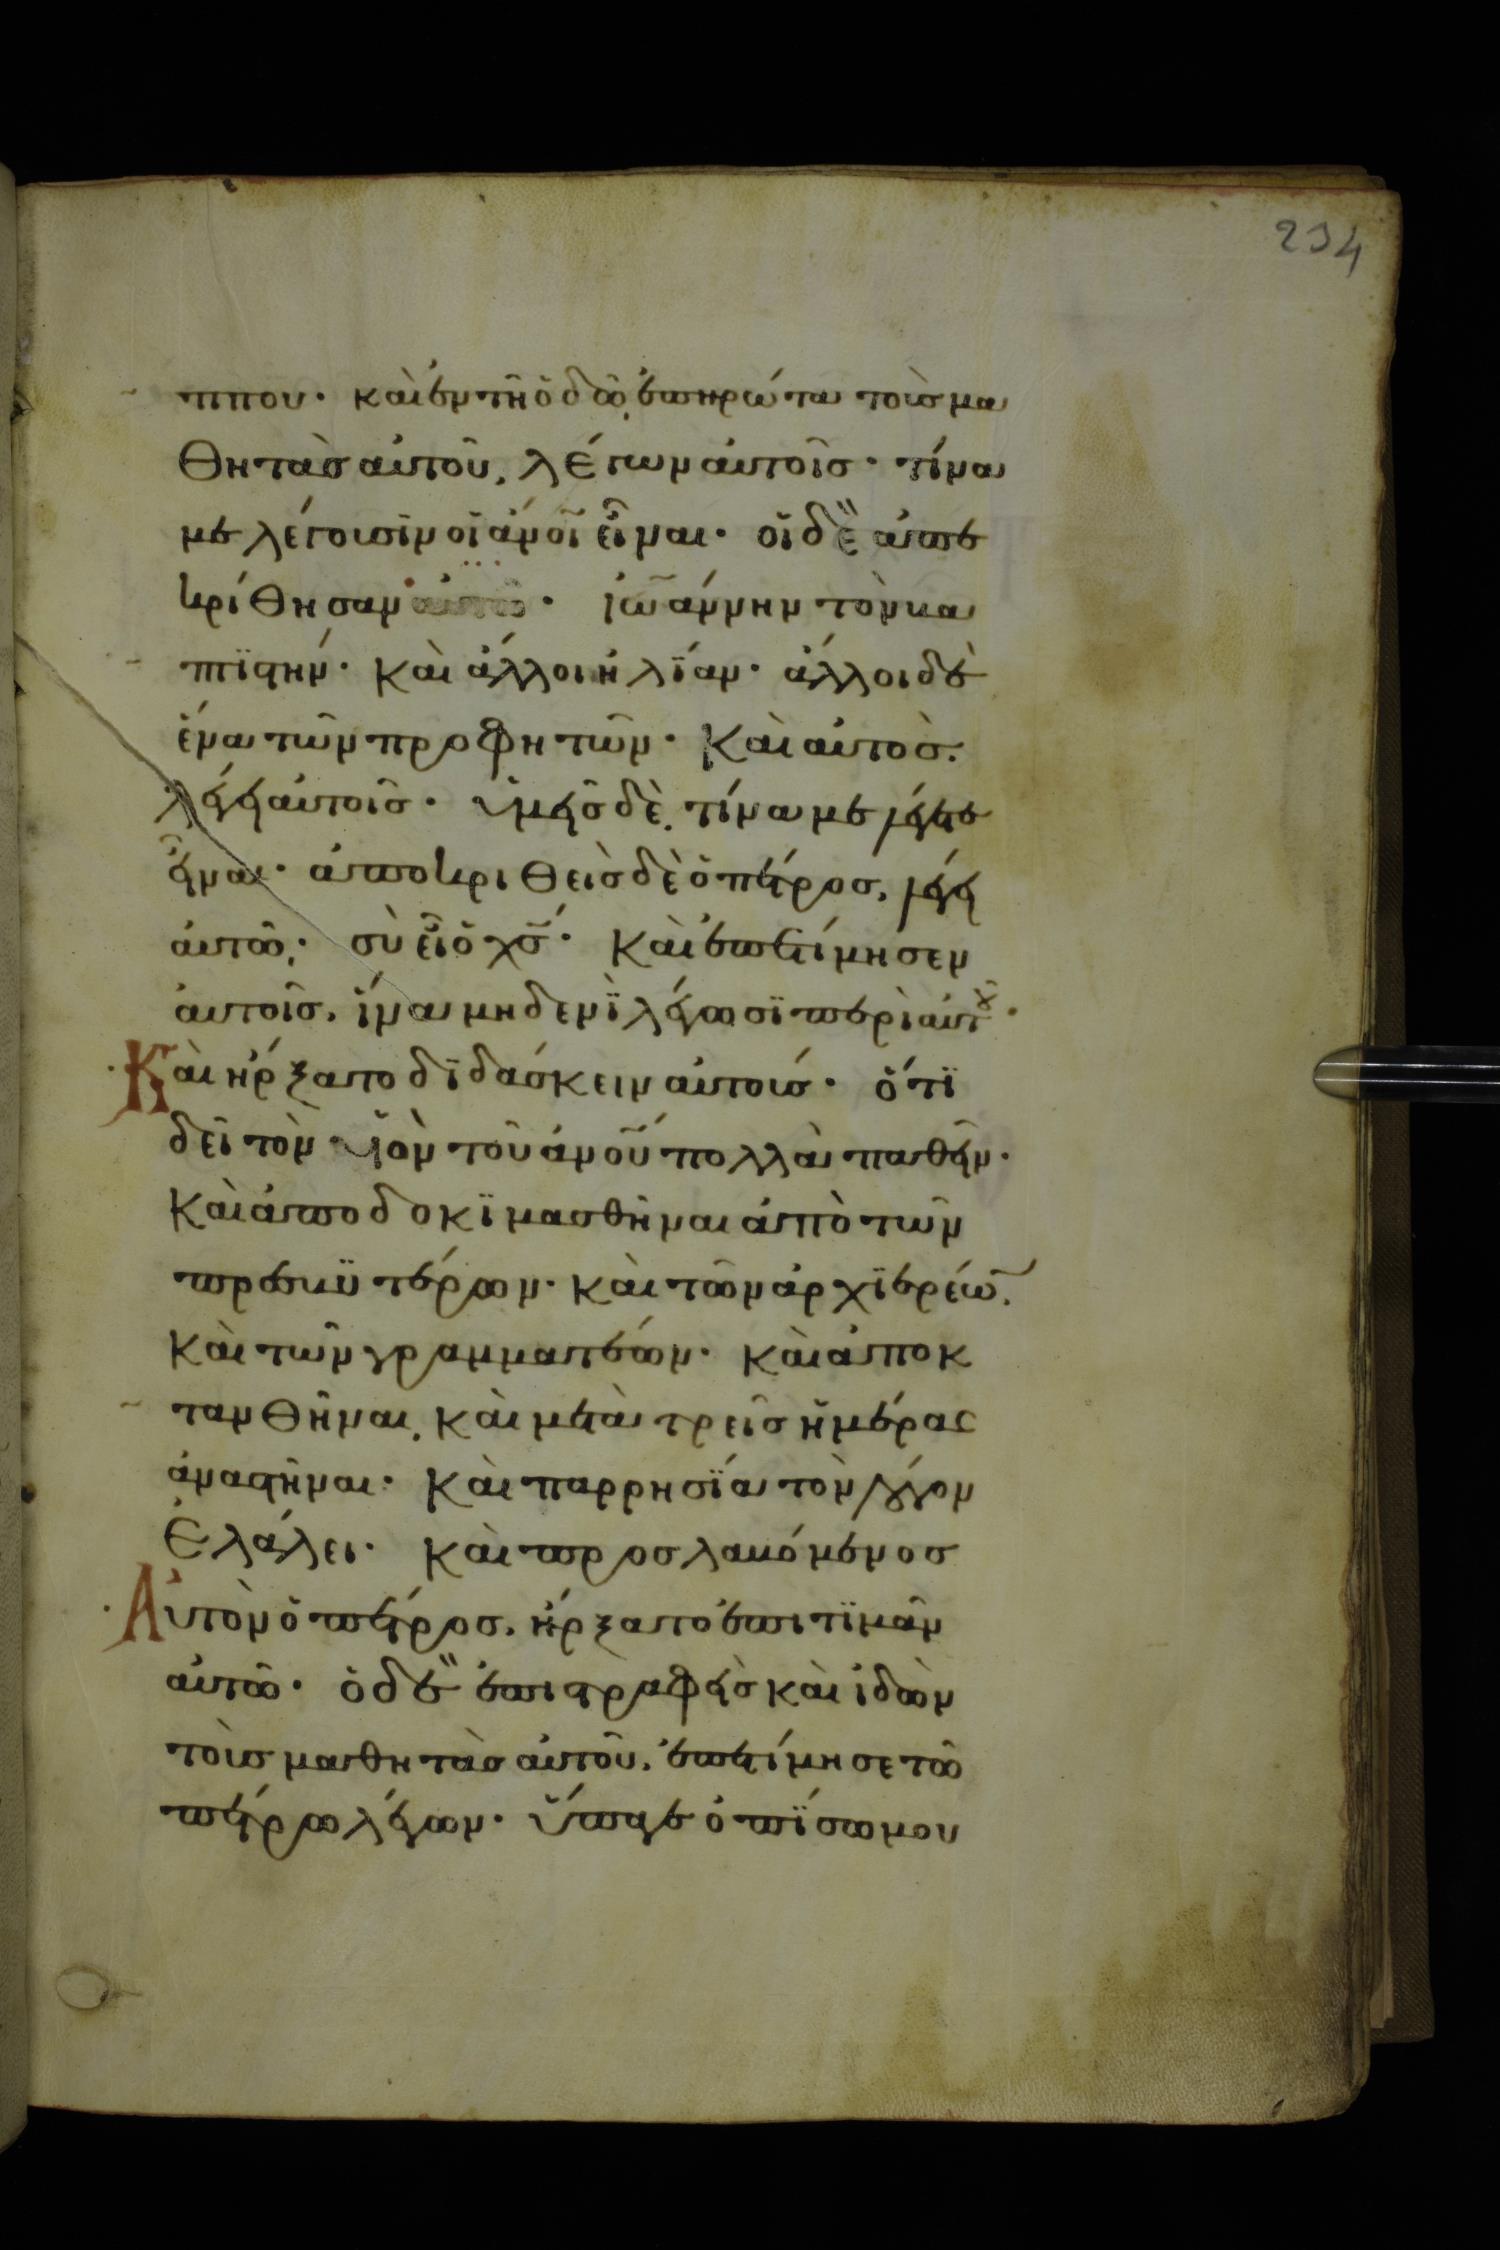 234
ππου· καὶ ἐν τῆ ὁδῶ, ἐπηρώτα τοὺς μα
θητὰς αὐτοῦ, λέγων αὐτοῖς· τίνα
με λέγουσϊν οἱ ἀν̅ο̅ι̅ εἶναι· οἱ δὲ ἀπε
κρίθησαν αὐτῶ· ἰω̅άννην τὸν βα
πτϊστήν· καὶ ἄλλοι ἡλΐαν· ἄλλοι δὲ
ἕνα τῶν προφητῶν· καὶ αὐτὸς.
λέγει αὐτοῖς· ὑμεῖς δὲ, τίνα με λέγετε
εἶναι· ἀποκριθεὶς δὲ ὁ πέτρος, λέγει
αὐτῶ· σὺ εἶ ὁ χ̅ς̅· καὶ ἐπετίμησεν
αὐτοῖς, ἵνα μηδενῒ λέγωσϊ περὶ αὐτοῦ·
Καὶ ἤρξατο δϊδάσκειν αὐτοὺς· ὅτϊ
δεῖ τὸν υἱὸν τοῦ ἀν̅ο̅υ̅ πολλὰ παθεῖν·
καὶ ἀποδοκϊμασθῆναι ἀπὸ τῶν
πρεσβϋτέρων· καὶ τῶν ἀρχϊερέω̅.
καὶ τῶν γραμματέων· καὶ ἀποκ
τανθῆναι, καὶ μετὰ τρεῖς ἡμέρας
ἀναστῆναι· καὶ παρρησΐα τὸν λόγον
ἐλάλει· καὶ προσλαβόμενος
Αὐτὸν ὁ πέτρος, ἤρξατο ἐπιτϊμᾶν
αὐτῶ· ὁ δὲ ἐπιστραφεὶς καὶ ἰδὼν
τοὺς μαθητὰς αὐτοῦ, ἐπετίμησε τῶ
πέτρω λέγων· ὕπαγε ὀπΐσω μου